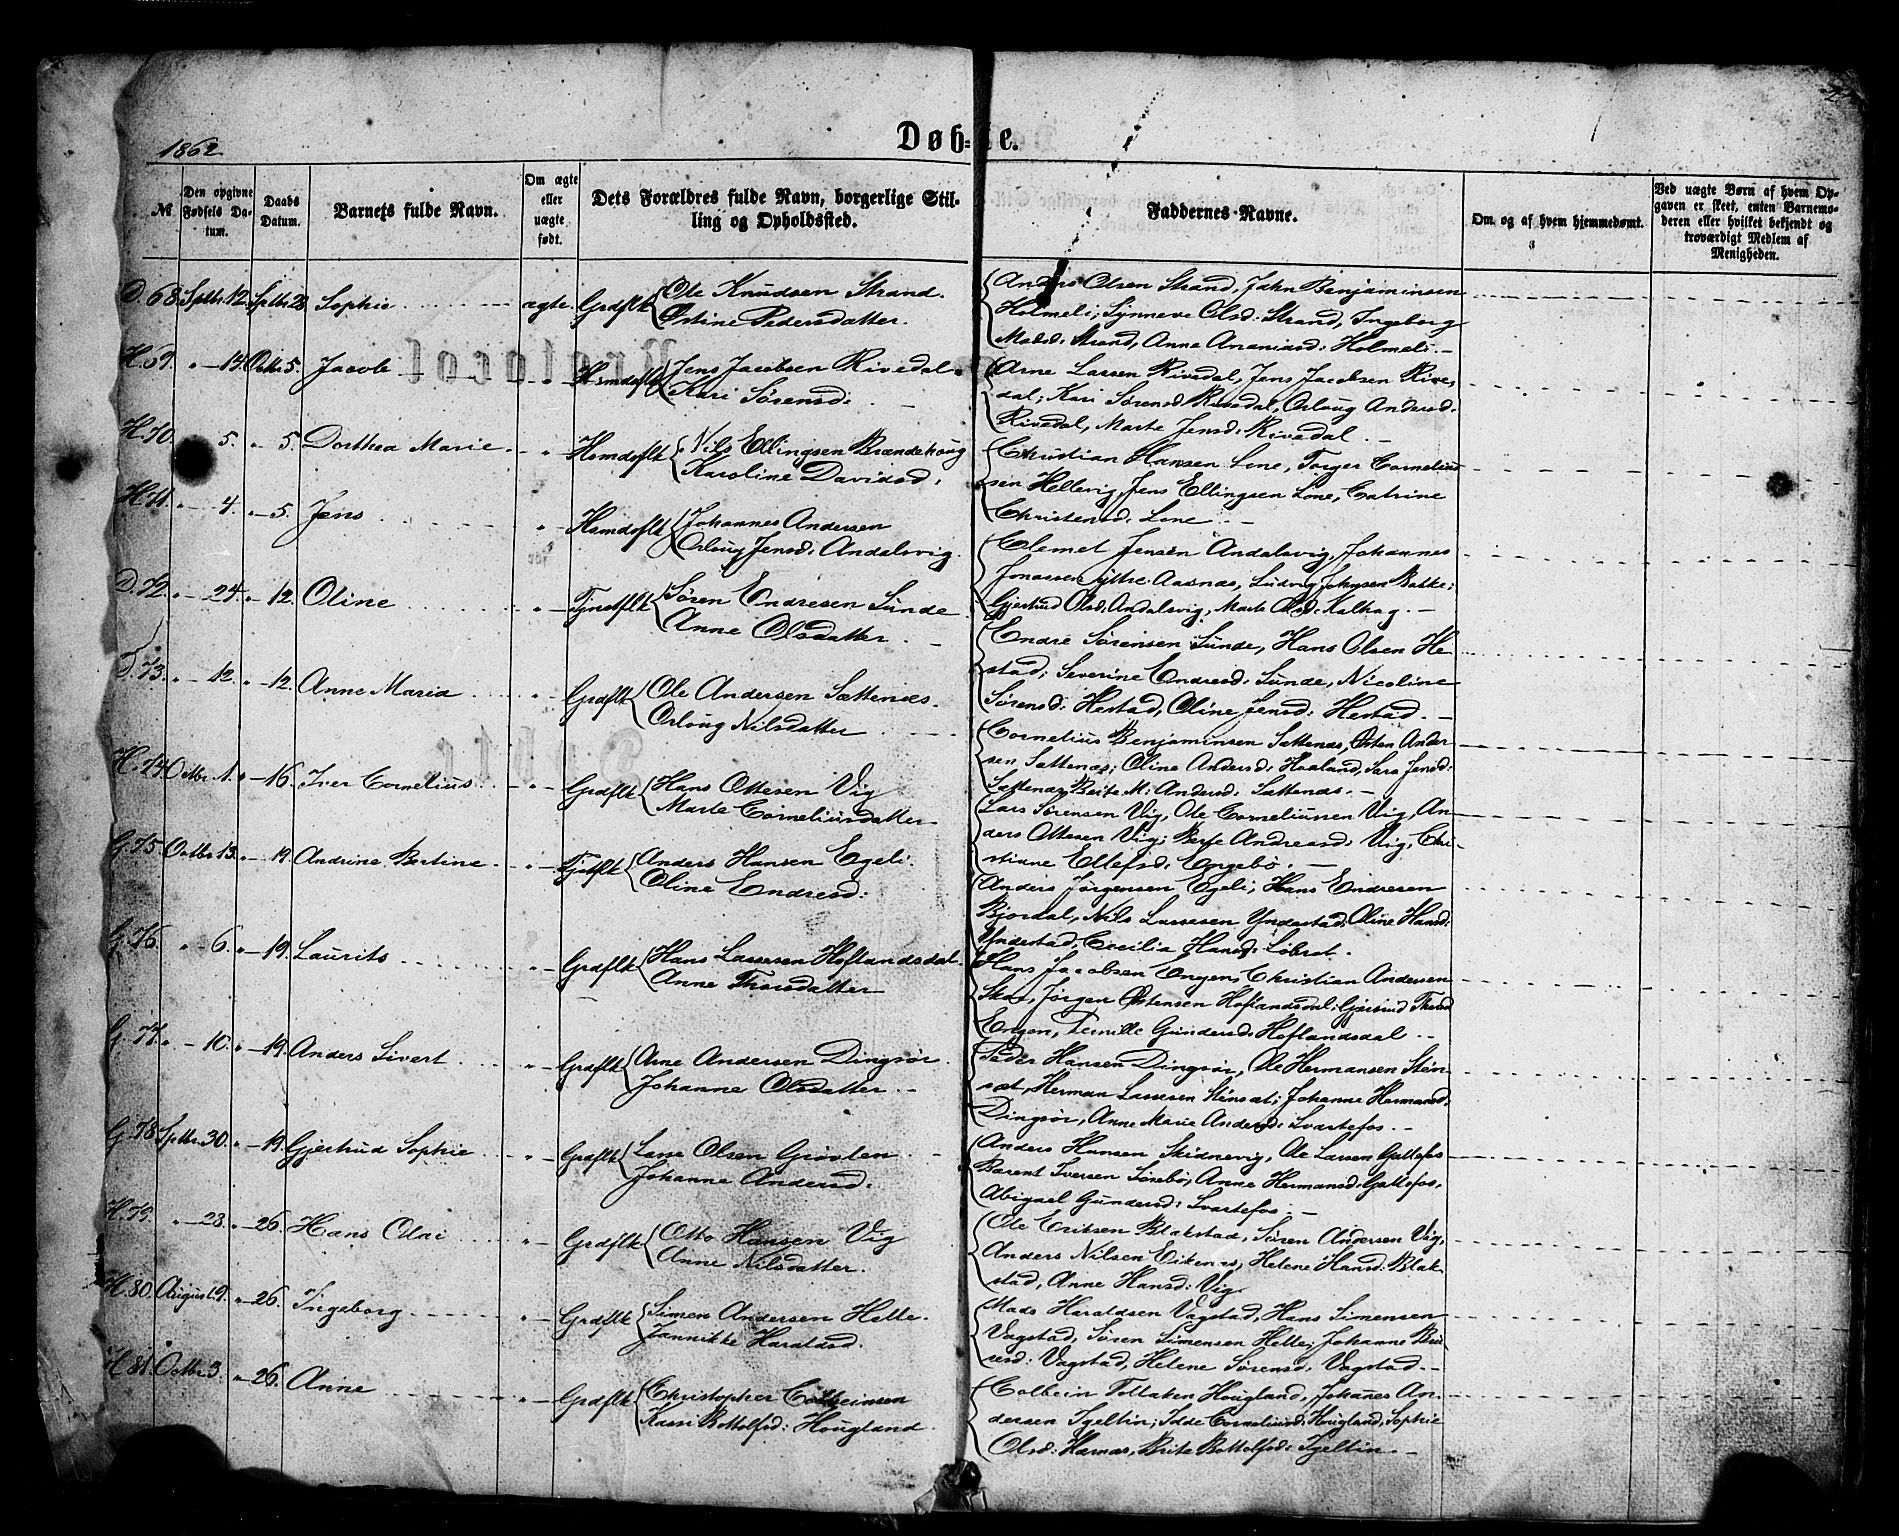 1862
Døbte.
№
Den opgivne Fødsels Datum.
Daabs Datum.
Barnets fulde Navn.
Om ægte eller uægte født.
Dets Forældres fulde Navn, borgerlige Stilling og Opholdssted.
Faddernes Navne.
Om og af hvem hjemmedømt.
Ved uægte Børn af hvem Opgaven er skeet, enten Barnemoderen eller hvilket bekjendt og troværdigt Medlem af Menigheden.
D. 68. Sptbr. 12. Sptbr 28 Sophie ægte. Grdflk Ole Knudsen Strand.
Ostine Pedersdatter.
Anders Olsen Strand, Jahn Benjaminsen
Holmeli; Synneve Olsd. Strand, Ingeborg
Madsd: Strand, Anne Ananiasd: Holmeli. —
H. 69. " — 14. Octbr 5. Jacob " Hsmdsflk Jens Jacobsen Rivedal.
Kari Sørensd:
Arne Larsen Rivedal, Jens Jacobsen Rive-
dal; Kari Sørensd Rivedal, Orloug Andersd.
Rivedal, Marte Jensd: Rivedal. —
H. 70. 5. " 5. Dorthea Marie " Hsmdsflk Nils Ellingsen Brændehoug
Karoline Davidsd.
Christian Hansen Lone, Torger Cornelius-
sen Hellevig, Jens Ellingsen Lone, Catrine
Christensd. Lone —
H. 71. " — 4. " — 5. Jens " Hsmdsflk Johannes Andersen
Orloug Jensd: Andalsvig.
Clemet Jensen Andalsvig, Johannes
Jonassen ytre Aasnæs, Ludvig Johnsen Bakke;
Gjertrud Olsd. Andalsvig, Marte Olsd. Kalhag. —
D. 72. " — 24. " — 12. Oline " — Tjnstflk Søren Endresen Sunde
Anne Olsdatter.
Endre Sørensen Sunde, Hans Olsen He-
stad; Severine Endresd. Sunde, Nicoline
Sørensd: Hestad, Oline Jensd: Hestad. —
D. 73. " — 12. " — 12. Anne Maria " Grdflk Ole Andersen Sættenæs.
Orloug Nilsdatter
Cornelius Benjaminsen Sættenæs, Osten Ander-
sen Sættenæs; Oline Andersd: Haaland, Sara Jensd:
Sættenæs, Berite M: Andersd: Sættenæs. —
H. 74. Octbr. 1. " — 16. Iver Cornelius " Grdflk Hans Ottesen Vig
Marte Corneliusdatter
Lars Sørensen Vig, Ole Corneliussen Vig, An-
ders Ottesen Vig; Berte Andreasd: Vig, Chri-
stiane Ellefsd. Engebø. —
G. 75. Octbr 13. " — 19. Andrine Bertine " — Tjstflk Anders Hansen Egeli.
Oline Endresd:
Anders Jørgensen Egeli, Hans Endresen
Bjordal, Nils Lassesen Yndestad; Oline Hansd:
Yndestad, Cecilia Hansd:
G. 76. " — 6. " — 19. Laurits " Grdflk Hans Lassesen Hoflandsdal.
Anne Thorsdatter
Hans Jacobsen Engen, Christian Andersen
Skar, Jørgen Ostensen Hoflandsdal; Gjertrud Thorsd
Engen, Pernille Gundersd: Hoflandsdal —
G. 77. " — 10. " — 19. Anders Sivert " — Grdflk Arne Andersen Dingsør.
Johanne Olsdatter —
Peder Hansen Dingsør, Ole Hermansen Stein-
sæt, Herman Lassesen Steinsæt; Johanne Hermansd:
Dingsør, Anne Marie Andersd: Svartefos. —
G. 78. Sptbr. 30. " — 19. Gjertrud Sophie " — Grdflk Lasse Olsen Grøvlen
Johanne Andersd.
Anders Hansen Skidnevig, Ole Larsen Gjettefos
Bærent Iversen Sørebø, Anne Hermansd. Gjettefos,
Abigael Gundersd: Svartefos. —
H. 79. " — 28. " — 26. Hans Olai " Grdflk Otto Hansen Vig
Anne Nilsdatter.
Ole Eriksen Blakstad, Søren Andersen Vig,
Anders Nilsen Eikenæs; Helene Hansd: Blak-
stad, Anne Hansd: Vig
H. 80. August 19. " — 26. Ingeborg " Grdflk Simen Andersen Helle.
Jannikke Haraldsd.
Mads Haraldsen Vagstad, Hans Simensen
Vagstad, Søren Simensen Helle; Johanne
Vagstad, Helene Sørensd. Vagstad. —
H. 81. Octbr 3. " — 26. Anne " — Grdflk Christopher Colbeinsen
Kari Bottolfsd: Hougland
Colbein Tollaksen Hougland, Johannes An-
dersen Igeltin; Idde Corneliusd: Hougland, Sophie
Olsd: Harnæs, Brite Bottolfsd: Igeltin. —